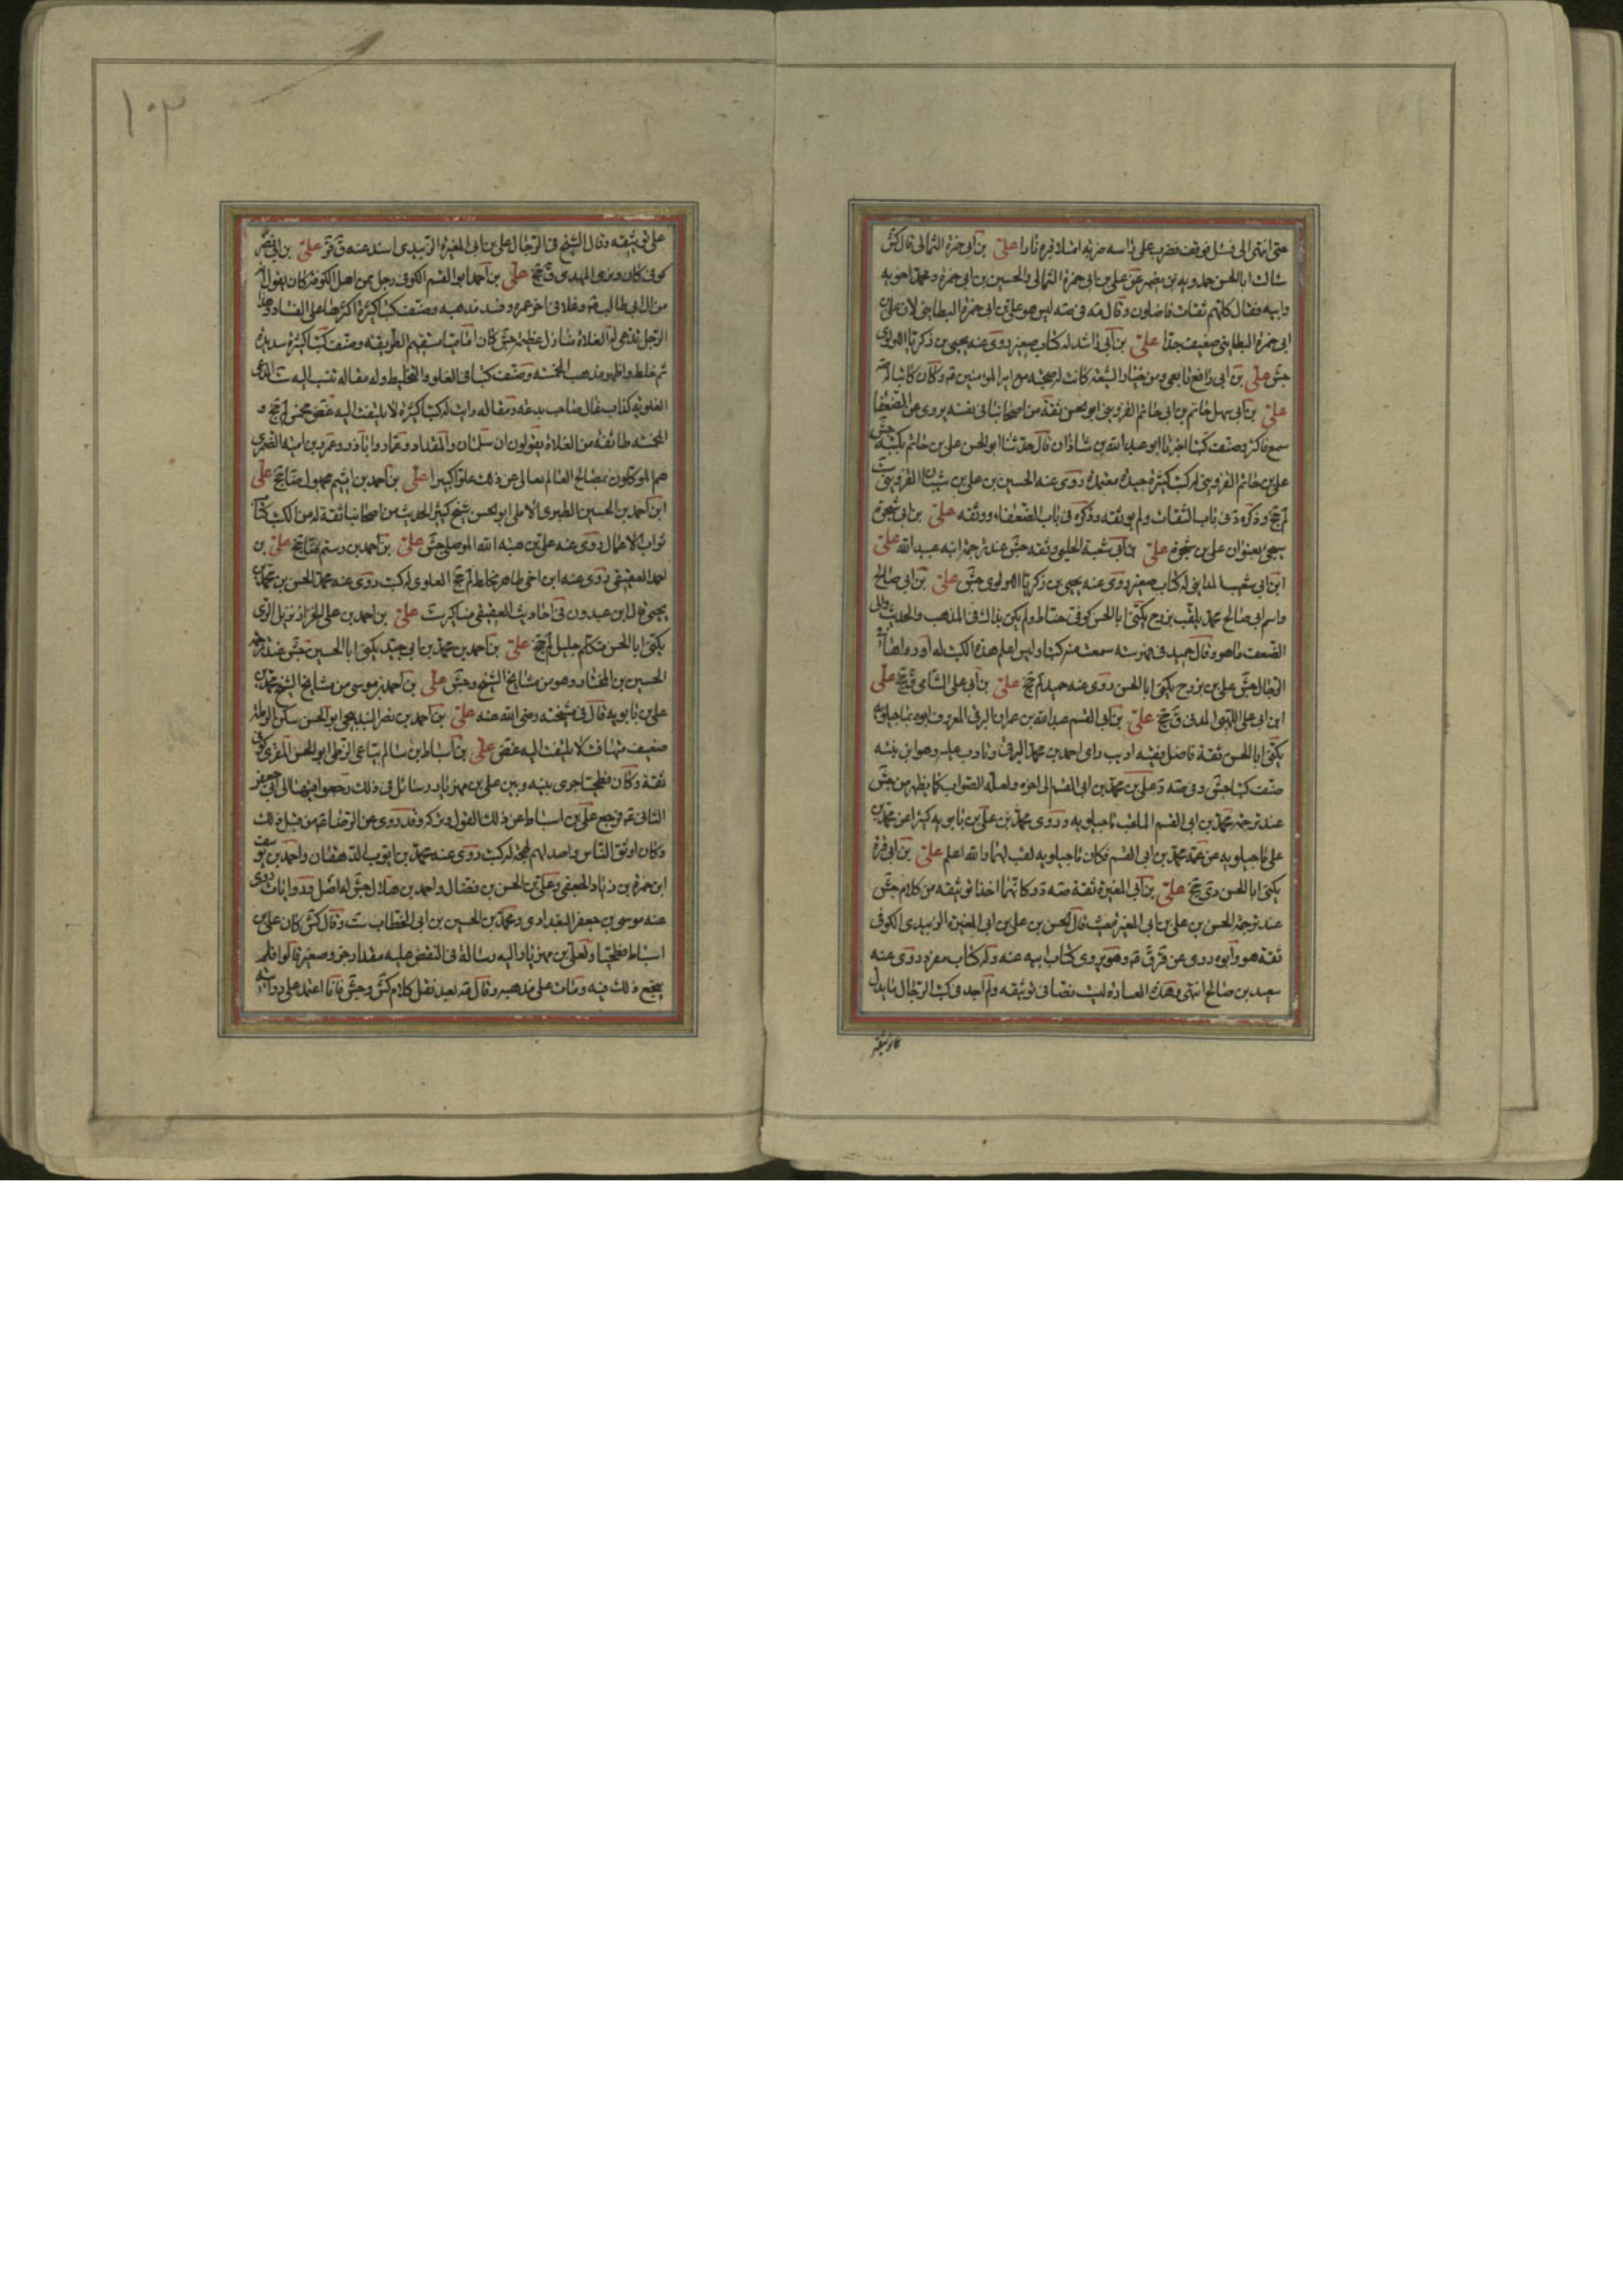 حتى انتهى الى فشل فوقف فضرب على راسه ضربة امتلا قبره نارا علي بن ابي حمزة الثمالى قال كش
سالت ابا الحسن حمدويه بن نصير عن علي بن ابي حمزة الثمالى والحسين بن ابي حمزة ومحمد اخويه
وابيه فقال كلهم ثقات فاضلون وقال مة في صه ليس هو علي بن ابي حمزة البطايني لان علي بن
ابي حمزة البطايني ضعيف جدا علي بن ابي راشد له كتاب صغير روى عنه يحيى بن زكريا اللولوى
جش علي بن ابي رافع تابعي ومن خيار الشيعة كانت له صحبة مع امير المؤمنين ع وكان كاتبا له
علي بن ابي سهل حاتم بن ابي حاتم القزويني ابو الحسن ثقة من اصحابنا في نفسه يروى عن الضعفا
سمع فاكثر وصنف كتبا اخبرنا ابو عبد الله بن شاذان قال حدثنا ابو الحسن علي بن حاتم بكتبه جش
علي بن حاتم القزويني له كتب كثيرة جيدة معتمدة روى عنه الحسين بن علي بن شيبان القزويني ست
لم جخ وذكره د في باب الثقات ولم يوثقه وذكره في باب الضعفاء ووثقه علي بن ابي شجرة
يجيء بعنوان علي بن شجرة علي بن ابي شعبة الحلبي وثقه جش عند ترجمة ابنه عبيد الله علي
ابن ابي شهيد المدايني له كتاب صغير روى عنه يحيى بن زكريا اللولوى جش علي بن ابي صالح
واسم ابي صالح محمد يلقب بزرج يكنى ابا الحسن كوفي حناط ولم يكن بذاك في المذهب والحديث والى
الضعف ماهو وقال حميد في فهرسته سمعت منه كتبا وليس اعلم هذه الكتب له او رواها عن
الرجال جش علي بن بزرج يكنى ابا الحسن روى عنه حميد لم جخ علي بن ابي علي الشامي ق جخ علي
ابن ابي علي اللهبي المدني ق جخ علي بن ابي القسم عبد الله بن عمران البرقي المعروف ابوه بماجيلويه
يكنى ابا الحسن ثقة فاضل فقيه اديب راى احمد بن محمد البرقي وتادب عليه وهو ابن بنته
صنف كتبا جش وفي صه د علي بن محمد بن ابي القسم الى اخره ولعله الصواب كما يظهر من جش
عند ترجمة محمد بن ابي القسم الملقب ماجيلويه وروى محمد بن علي بن بابويه كثيرا عن محمد بن
علي ماجيلويه عن عمه محمد بن ابي القسم فكان ماجيلويه لقب لهما والله اعلم علي بن ابي قرة
يكنى ابا الحسن دي جخ علي بن ابي المغيرة ثقة صه د وكانهما اخذا توثيقه من كلام جش
عند ترجمة الحسن بن علي بن ابي المغيرة حيث قال الحسن بن علي بن ابي المغيرة الزبيدى الكوفي
ثقة هو وابوه روى عن قر ق ع وهو يروى كتاب ابيه عنه وله كتاب مفرد روى عنه
سعيد بن صالح انتهى وهذه العبارة ليست نصا في توثيقه ولم اجد في كتب الرجال ما يدل
على توثيقه
١٠٣
على توثيقه وقال الشيخ في الرجال علي بن ابي المغيرة الزبيدى اسند عنه ق قر علي بن ابي نصر
كوفي كان وزير المهدى ق جخ علي بن احمد ابو القسم الكوفي رجل من اهل الكوفة كان يقول انه
من ال ابي طالب ع وغلا في اخر عمره وفسد مذهبه وصنف كتبا كثيرة اكثرها على الفساد وهذا
الرجل تدعى له الغلاة منازل عظيمة جش كان اماميا مستقيم الطريقة وصنف كتبا كثيرة سديدة
ثم خلط واظهر مذهب المخمسة وصنف كتبا في الغلو والتخليط وله مقالة تنسب اليه ست المدعى
العلوية كذاب غال صاحب بدعة ومقالة رايت له كتبا كثيرة لا يلتفت اليه غض مخمس لم جخ و
المخمسة طائفة من الغلاة يقولون ان سلمان والمقداد وعمار وابا ذر وعمرو بن امية الضمرى
هم الموكلون بمصالح العالم تعالى عن ذلك علوا كبيرا علي بن احمد بن اشيم مجهول ضا جخ علي
ابن احمد بن الحسين الطبرى الاملى ابو الحسن شيخ كثير الحديث من اصحابنا ثقة له من الكتب كتاب
ثواب الاعمال روى عنه علي بن هبة الله الموصلي جش علي بن احمد بن رستم ضا جخ علي بن
احمد العقيقي روى عنه ابن اخي طاهر مخلط لم جخ العلوى له كتب روى عنه محمد الحسن بن محمد بن
يحيى قال ابن عبدون في احاديث العقيقي مناكير ست علي بن احمد بن علي الخزاز نزيل الرى
يكنى ابا الحسن متكلم جليل لم جخ علي بن احمد بن محمد بن ابي جيد يكنى ابا الحسين جش عند ترجمة
الحسين بن المختار وهو من مشايخ الشيخ وجش علي بن احمد بن موسى من مشايخ الشيخ محمد بن
علي بن بابويه قال في مشيخته رضى الله عنه علي بن احمد بن نصر البندنيجي ابو الحسن سكن الرملة
ضعيف متهافت لا يلتفت اليه غض علي بن اسباط بن سالم بياع الزطي ابو الحسن المقرى كوفي
ثقة وكان فطحيا جرى بينه وبين علي بن مهزيار رسائل في ذلك رجعوا فيها الى ابي جعفر
الثاني ع فرجع علي بن اسباط عن ذلك القول وتركه وقد روى عن الرضا ع من قبل ذلك
وكان اوثق الناس واصدقهم لهجة له كتب روى عنه محمد بن ايوب الدهقان واحمد بن يوسف
ابن حمزة بن زياد الجعفي وعلي بن الحسن بن فضال واحمد بن هلال جش له اصل وروايات روى
عنه موسى بن جعفر البغدادى ومحمد بن الحسين بن ابي الخطاب ست وقال كش كان علي بن
اسباط فطحيا ولعلي بن مهزيار اليه رسالة في النقض عليه مقدار جزء صغير قالوا فلم
ينجع ذلك فيه ومات على مذهبه وقال مه بعد نقل كلام كش وجش فانا اعتمد على روايته